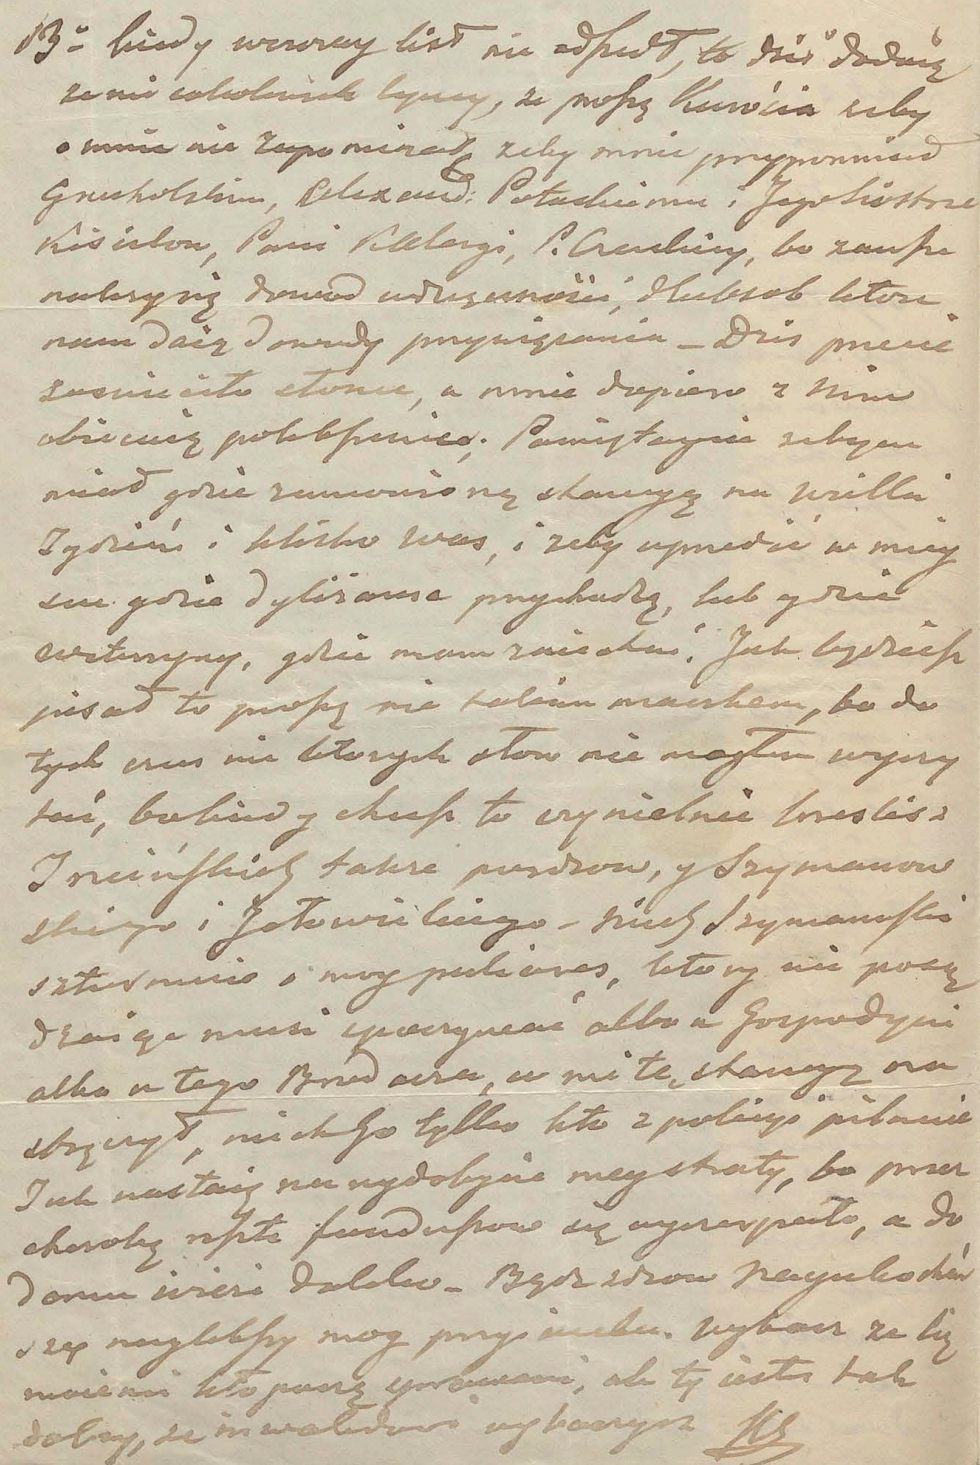 13º kiedy wczoray list nie odszedł, to dziś dodaię
że mi cokolwiek lepiey, że proszę Kuńcia żeby
o mnie nie zapominał, żeby mnie przypomniał
Grocholskim, Alexand: Potockiemu i Jego Siostrze
Kisielow, Pani Kalergi, P. bo zawsze
należy się dowod wdzięczności, dla osob ktore
nam daią dowody przywiązania – Dziś przecie
zaswieciło słonce, a mnie dopiero z nim
obiecuią polepszenie; Pamiętaycie żebym
miał gdzie zamowioną stancyę na willi
Tydzień i blisko was, i żeby uprzedzić w miey
scu gdzie dyliżanse przychodzą, lub gdzie
wetturyny, gdzie mam zaiechać. Jak będziesz
pisał to proszę nie takim maczkiem, bo do
tych czas nie ktorych słow nie mogłem wyczy
tać, bo kiedy chcesz to czytelnie kreslisz
Trzcińskich także pozdrow, y Szymanow
skiego i Jełowickiego – niech Szymanoski
sztur mnie o moy pulares, ktory nie
musi spoczywać albo u Gospodyni
albo u tego co mi tę stancyę na
stręczył, niech Go tylko kto z policyi pilnuie
Tak nastaię na wydobycie mey straty, bo przez
chorobę reszta funduszow się wyczerpało, a do
domu ieszcze daleko – Bądź zdrow Nayukochań
szy naylepszy moy przyiacielu. wybacz że Cię
moiemi kłopotami, ale ty iesteś tak
dobry, że inwalidowi wybaczysz